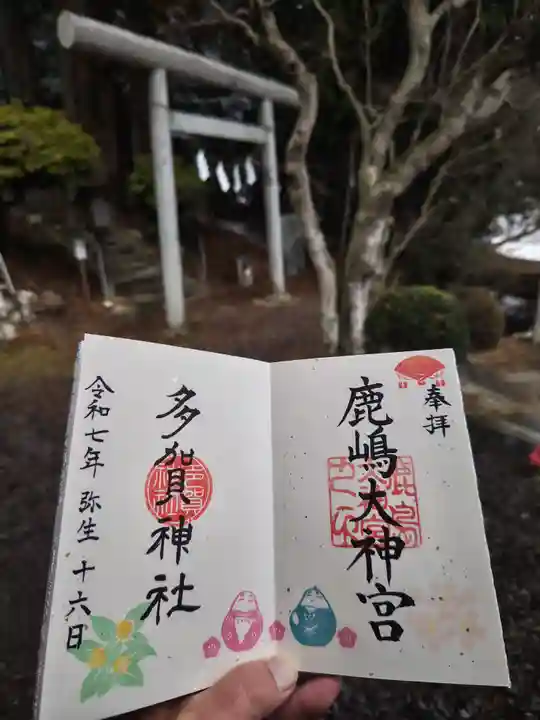 奉拝
鹿嶋大神宮
多加貝神社
令和七年 弥生 十六日